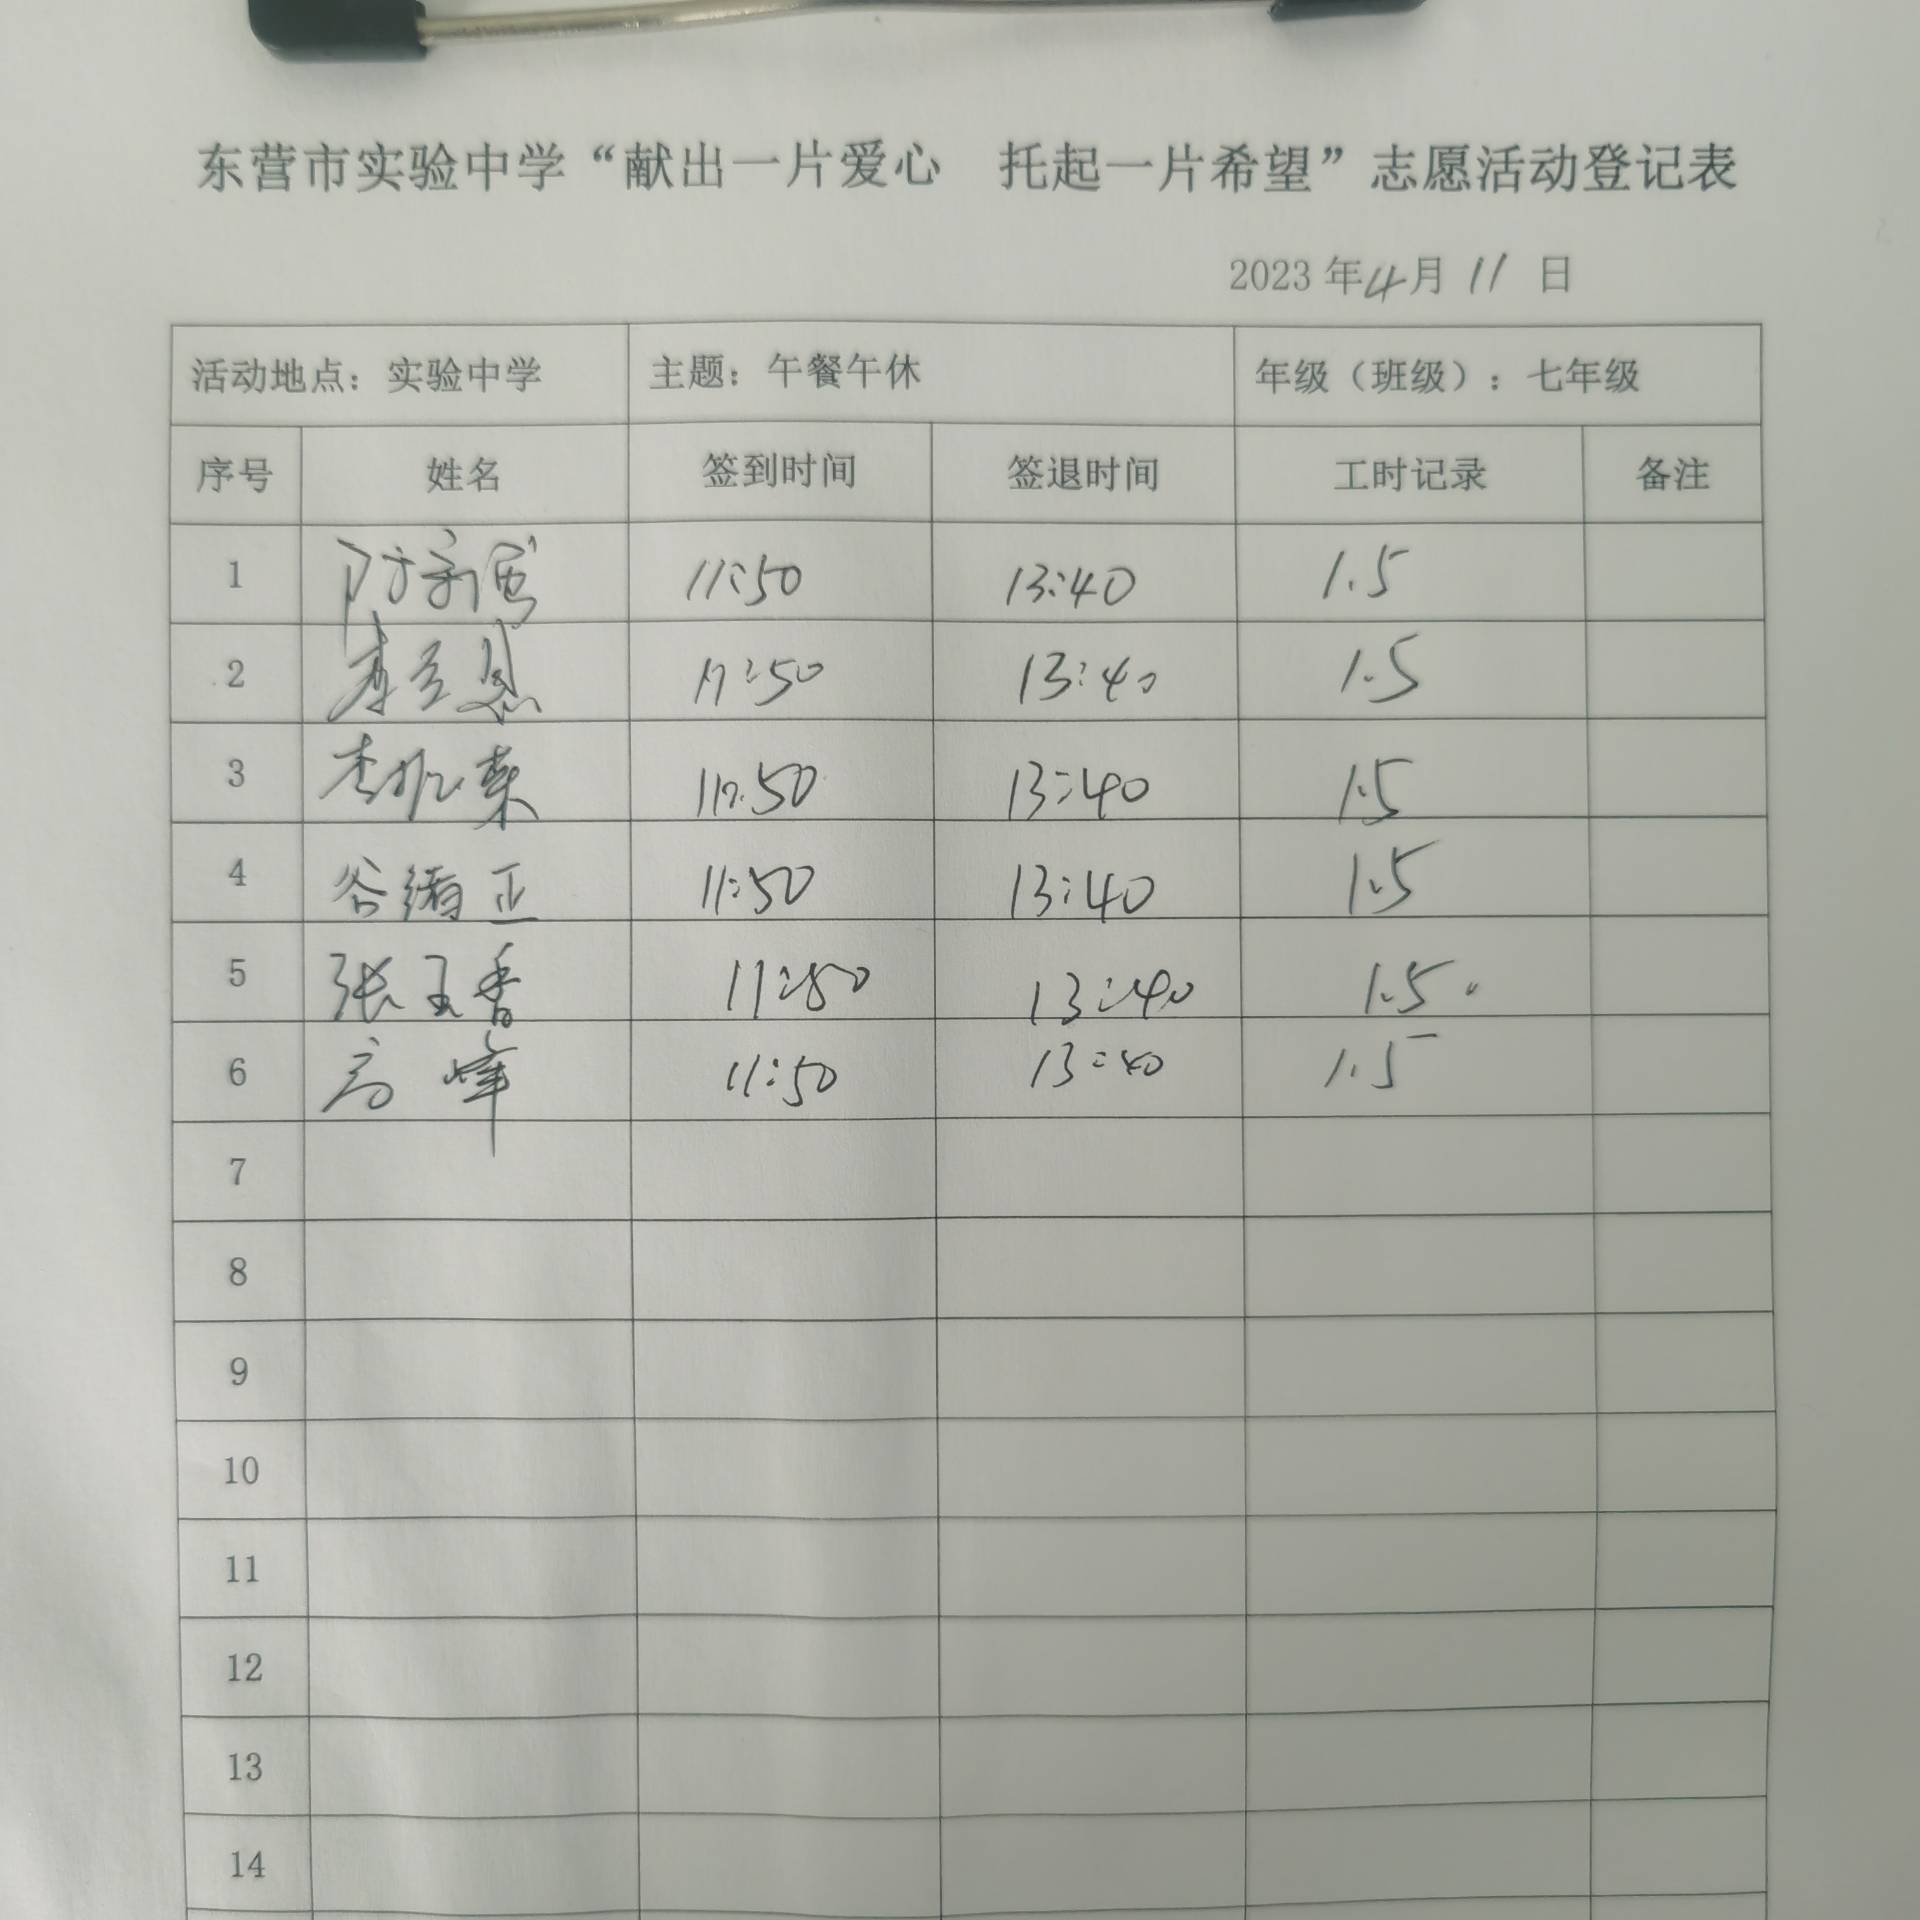 东营市实验中学“献出一片爱心 托起一片希望”志愿活动登记表
2023 年 4 月 11 日
活动地点：实验中学 主题：午餐午休 年级（班级）：七年级
序号 姓名 签到时间 签退时间 工时记录 备注
1 11:50 13:40 1.5
2 11:50 13:40 1.5
3 11:50 13:40 1.5
4 谷绪正 11:50 13:40 1.5
5 张玉香 11:50 13:40 1.5
6 高峰 11:50 13:40 1.5
7
8
9
10
11
12
13
14